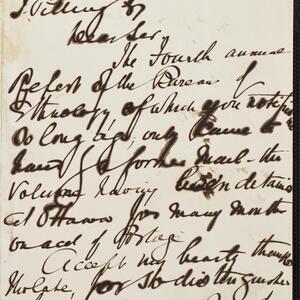 J. Pilling Esq
Dear Sir,
The Fourth annual
Report of the Bureau of
Ethnology of which you notified
so long ago, only came to
hand by former mail - the
Volume having been detained
at Ottawa for many months
on acct of Postage
Accept my hearty thanks
for so distinguished